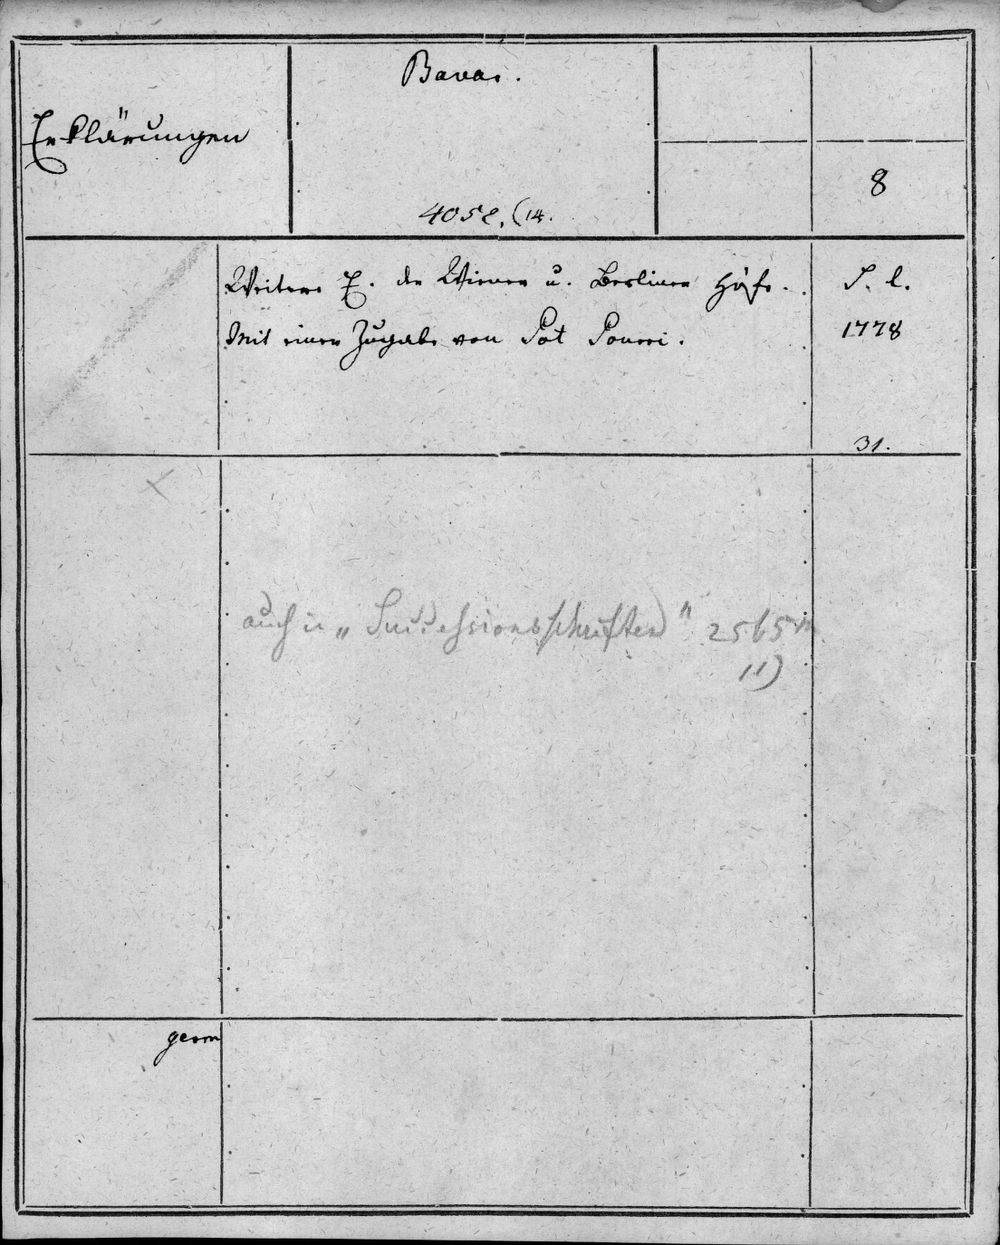 Bavar.
Erklärungen
8
4052, (14.
Weitere E. der Wiener u. Berliner Höfe.
S. l.
Mit einer Zugabe von Pot Pourri.
1778
31.
auch in „Successionsschriften" 2565m
11)
germ